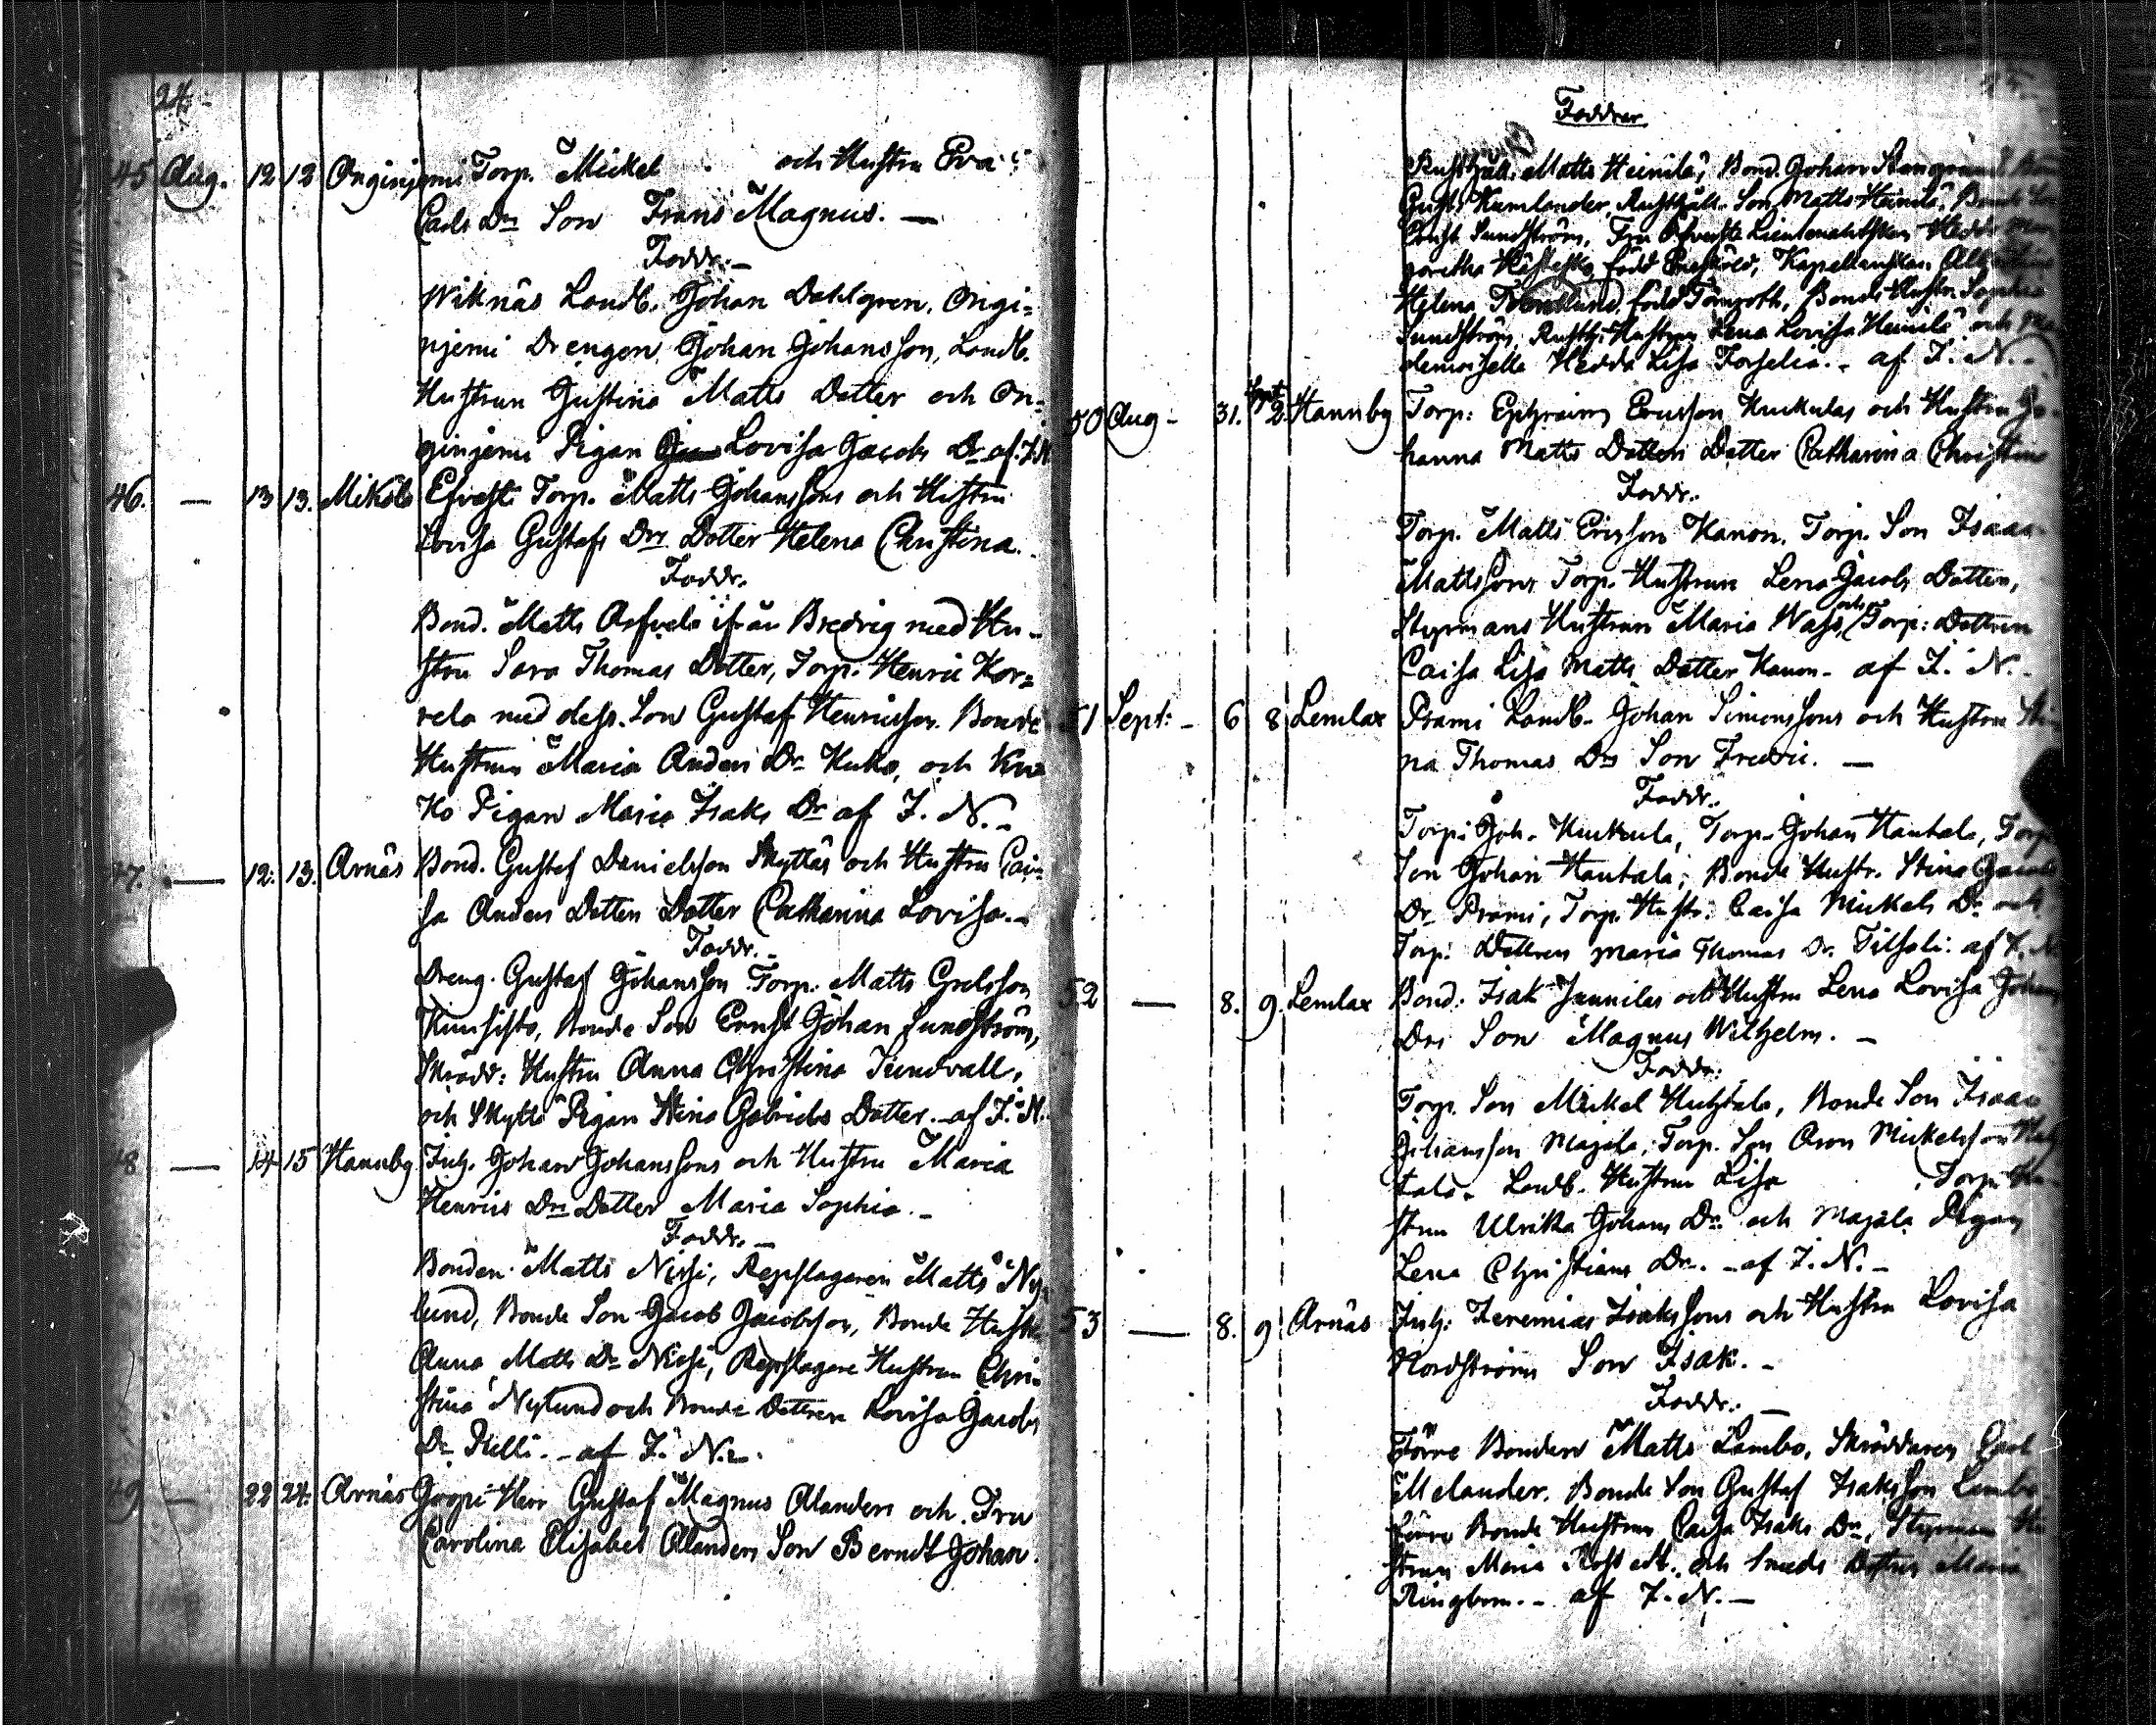 24.
45 Aug. 12 12 Onginjemi Torp. Mickel och Hustru Eva
Carls Drs Son Frans Magnus. —
Faddr. —
Wiknäs Landb. Johan Dahlgren, Ongi-
njemi Drengen Johan Johansson, Landb.
Hustrun Justina Matts Dotter och On-
ginjemi Pigan Lovisa Jacobs Dr af. F. N
46. — 13 13. Mikola Torp. Matts Johanssons och Hustru
Lovisa Gustafs Drs Dotter Helena Christina.
Faddr.
Bond. Matts Arfvela ifrån Bredvig med Hu-
strun Sara Thomas Dotter, Torp. Henric Kor-
rela med dess Son Gustaf Henricsson. Bonde
Hustrun Maria Anders Dr Kuko, och Ku-
ko Pigan Maria Isaks Dr af F. N. —
47. — 12. 13. Arnäs Bond. Gustaf Danielsson Skyttäs och Hustru Cai-
sa Anders Dotters Dotter Catharina Lovisa. —
Faddr. —
Dreng. Gustaf Johansson Torp. Matts Grelsson
Bonde Son Ernst Johan Sundström,
Skrädd: Hustru Anna Christina Sundvall,
och Skyttä Pigan Stina Gabriels Dotter. — af F. N.
48 — 14 15 Hannby Inh. Johan Johanssons och Hustru Maria
Henrics Drs Dotter Maria Sophia. —
Faddr. —
Bonden Matts Nissi, Repslagaren Matts Ny-
lund, Bonde Son Jacob Jacobsson, Bonde Hustru
Anna Matts Dr Nissi, Repslagare Hustrun Chri-
stina Nylund och Bonde Dottren Lovisa Jacobs
Dr Pelli. — af F. N. —
49 — 22 24. Arnäs Herr Gustaf Magnus Alanders och Fru
Carolina Elisabet Alanders Son Berndt Johan.
Faddrar
Rusthåll. Matts Heinilä, Bond. Johan
Gust. Kumlander, Rusthåll. Son Matts Heinilä, Bonde Son
Ernst Sundström, Fru Öfverste Lieutenantskan Hedda Mar-
garetha Hästesko född Kapellanskan
Helena född Törnroth, Bonde Hustr. Sophia
Sundström, Rusth. Hustrun Lena Lovisa Heinilä och Ma-
demoiselle Hedda Lisa Forselia. — af F. N. —
50 Aug — 31. Sept 2. Hannby Torp: Ephraim Ericsson Kuckulas och Hustru Jo-
hanna Matts Dotters Dotter Catharina Christina
Faddr.
Torp. Matts Ericsson Kanon, Torp. Son Isaac
Mattsson, Torp. Hustrun Lena Jacobs Dotter,
Styrmans Hustrun Maria Wass, och Torp: Dottren
Caisa Lisa Matts Dotter Kanon — af F. N. —
51 Sept: — 6 8 Lemlax Prami Landb. Johan Simonssons och Hustru Sti-
na Thomas Drs Son Fredric. —
Faddr.
Torp: Joh. Kuckula, Torp. Johan Hautala, Torp
Son Johan Hautala, Bonde Hustr. Stina Jacobs
Dr Prami, Torp. Hustr: Caisa Mickels Dr och
Torp: Dottren Maria Thomas Dr. af F. N
52 — 8. 9. Lemlax Bond: Isak Jannilas och Hustru Lena Lovisa Johans
Drs Son Magnus Wilhelm. —
Faddr:
Torp. Son Mickel Huhtala, Bonde Son Isaac
Johansson Majala, Torp. Son Aron Mickelsson Huh-
tala, Landb. Hustrun Lisa , Torp: Hu-
strun Ulrika Johans Dr och Majala Pigan
Lena Christians Dr. — af F. N. —
53 — 8. 9. Arnäs Inh: Jeremias Isakssons och Hustru Lovisa
Nordströms Son Isak. —
Faddr. —
Förre Bonden Matts Lambo, Skräddaren Carl
Melander, Bonde Son Gustaf Isaksson Lambo
förre Bonde Hustrun Caisa Isaks Dr, Styrman Hu-
strun Maria och Smeds Dottren Maria
Ringbom. — af F. N. —